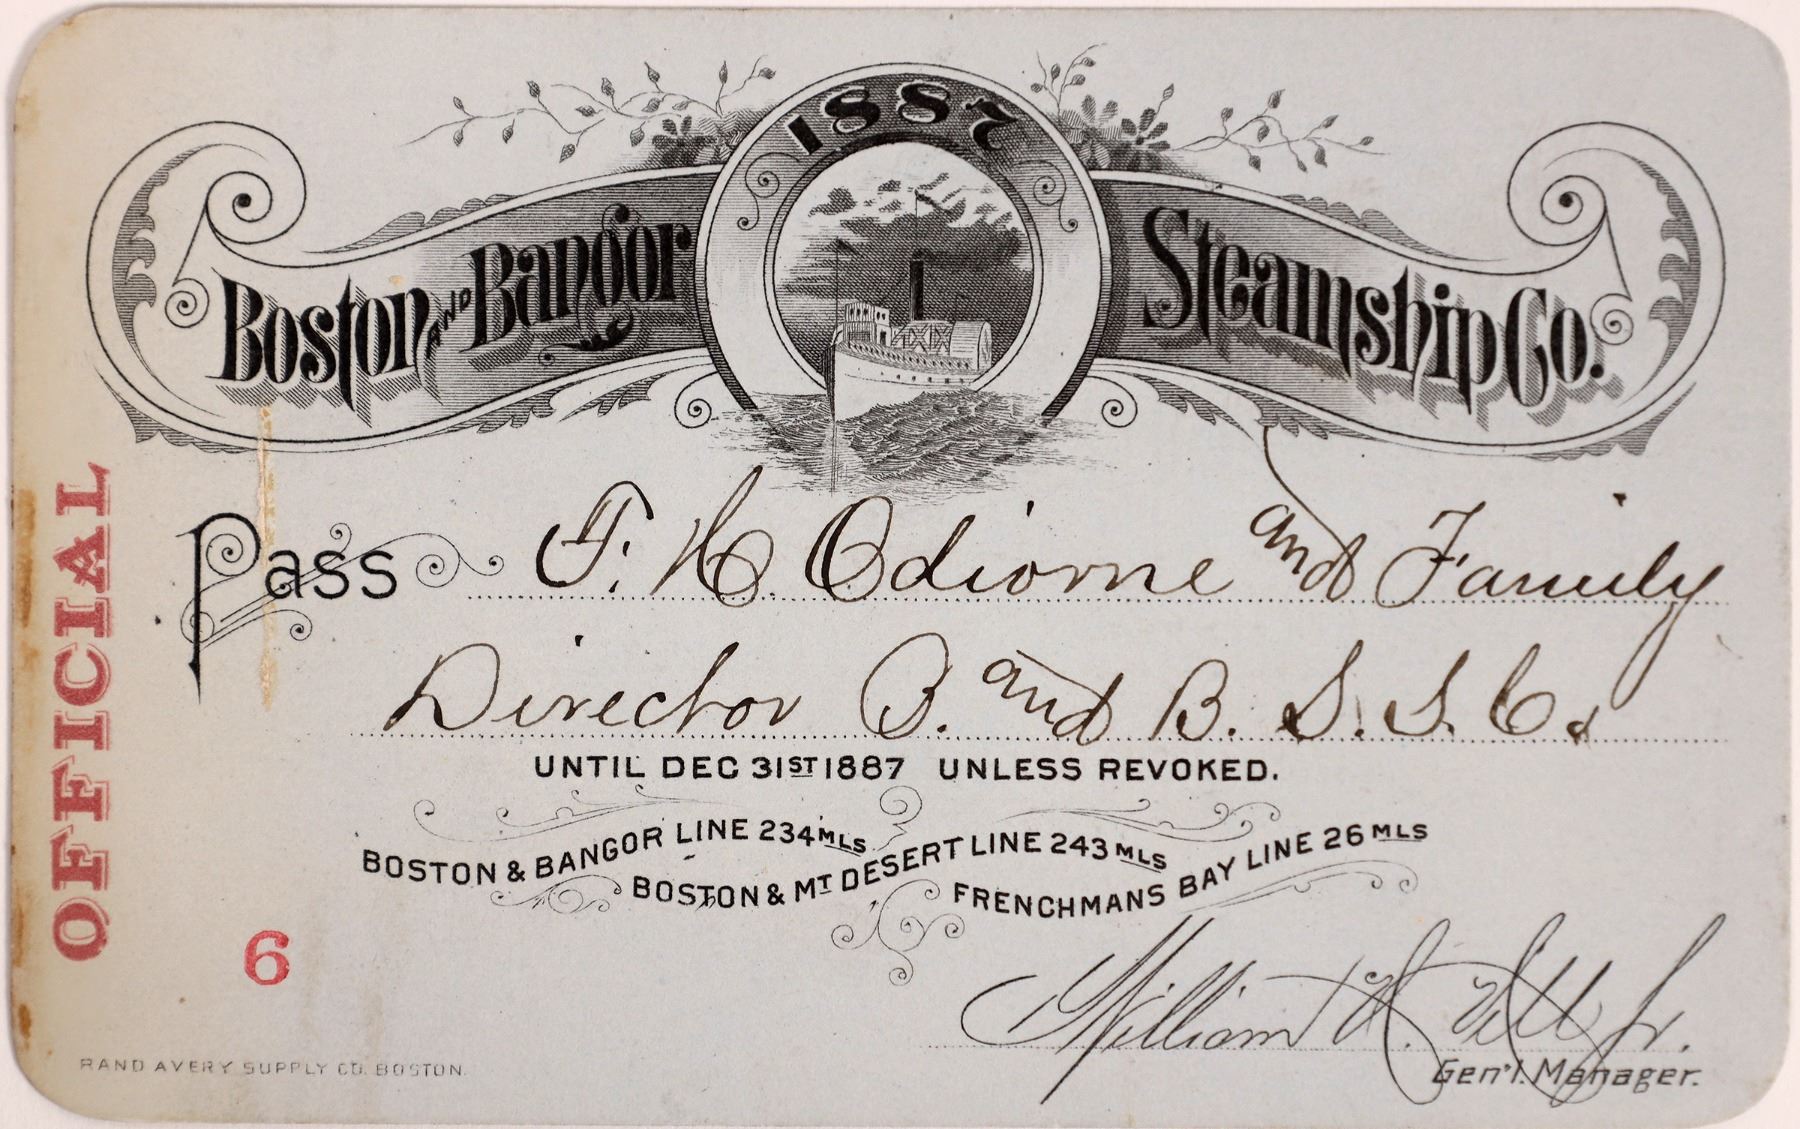 1887
Boston AND Bangor Steamship Co.
OFFICIAL
Pass F. H. Odiorne and Family
Director B. and B. S. S. Co.
UNTIL DEC 31ST 1887 UNLESS REVOKED.
BOSTON & BANGOR LINE 234 MLS
BOSTON & MT DESERT LINE 243 MLS
FRENCHMANS BAY LINE 26 MLS
6
William H. Hill Jr.
Gen'l. Manager.
RAND AVERY SUPPLY CO. BOSTON.